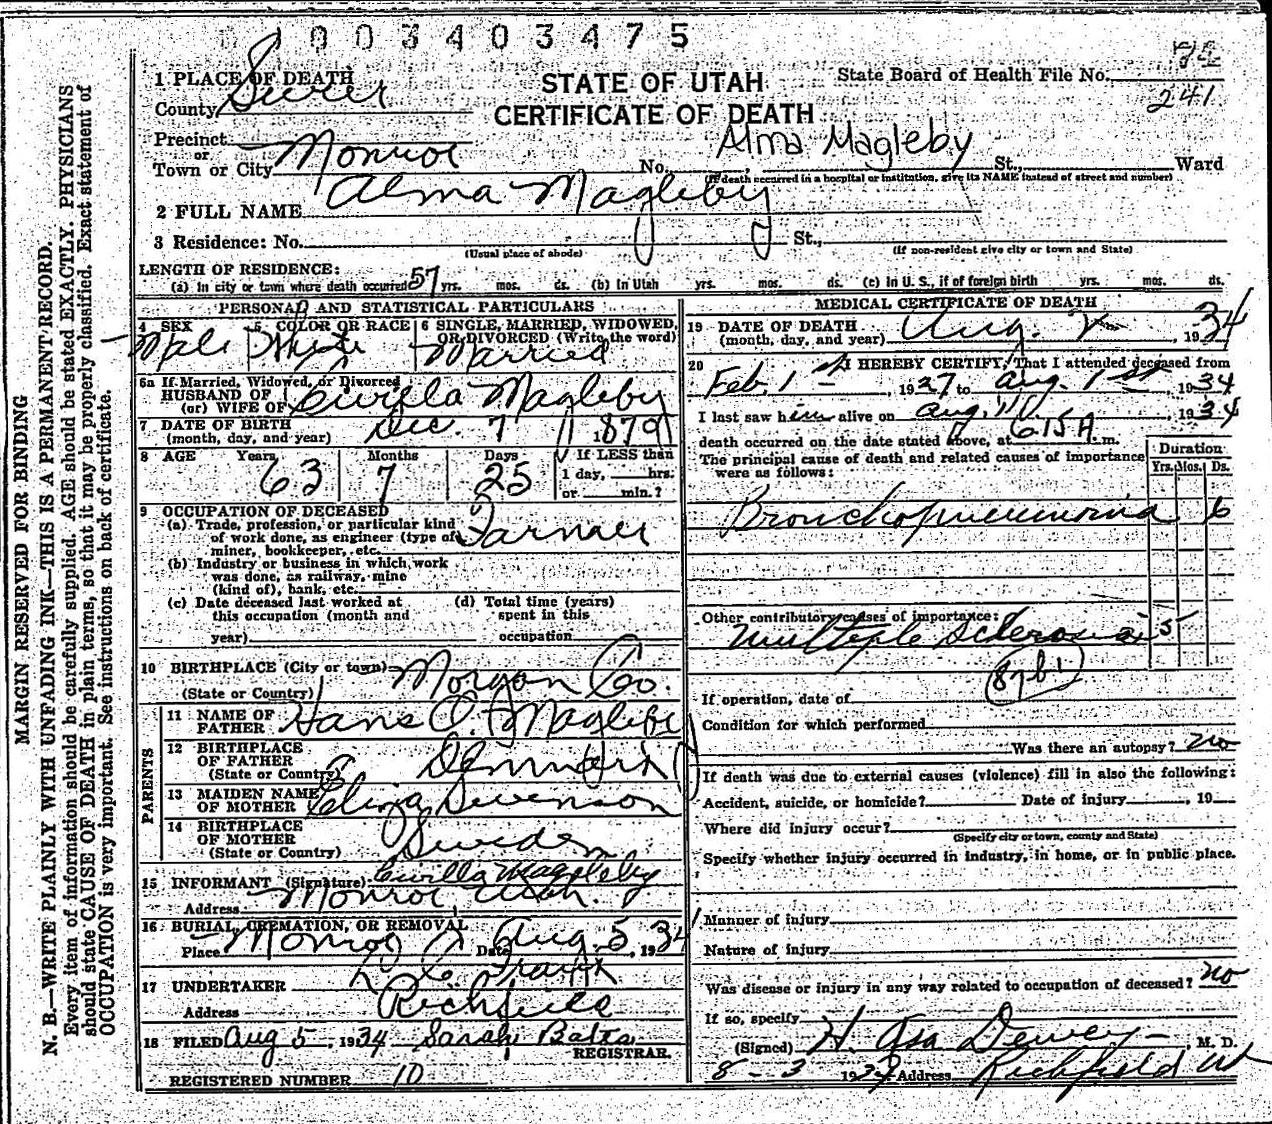 1003403475
1 PLACE OF DEATH
STATE OF UTAH
State Board of Health File No. 72
County Sevier
CERTIFICATE OF DEATH
241
Precinct
or
Town or City Monroe No. Alma Magleby St., Ward
(If death occurred in a hospital or institution, give its NAME instead of street and number)
2 FULL NAME Alma Magleby
3 Residence: No. St.,
(Usual place of abode) (If non-resident give city or town and State)
LENGTH OF RESIDENCE:
(a) In city or town where death occurred 57 yrs. mos. ds. (b) In Utah yrs. mos. ds. (c) In U. S., if of foreign birth yrs. mos. ds.
PERSONAL AND STATISTICAL PARTICULARS
4 SEX 5 COLOR OR RACE 6 SINGLE, MARRIED, WIDOWED, OR DIVORCED (Write the word)
Male White Married
6a If Married, Widowed, or Divorced
HUSBAND OF
(or) WIFE OF Civilla Magleby
7 DATE OF BIRTH
(month, day, and year) Dec. 7 1870
8 AGE Years Months Days If LESS than
63 7 25 1 day, hrs.
or min.?
9 OCCUPATION OF DECEASED
(a) Trade, profession, or particular kind
of work done, as engineer (type of Farmer
miner, bookkeeper, etc.
(b) Industry or business in which work
was done, as railway, mine
(kind of), bank, etc.
(c) Date deceased last worked at (d) Total time (years)
this occupation (month and spent in this
year) occupation
10 BIRTHPLACE (City or town) Morgan Co.
(State or Country)
PARENTS
11 NAME OF
FATHER Hans O. Magleby
12 BIRTHPLACE
OF FATHER Denmark
(State or Country)
13 MAIDEN NAME
OF MOTHER Eliza Swenson
14 BIRTHPLACE
OF MOTHER Sweden
(State or Country)
15 INFORMANT (Signature) Civilla Magleby
Address Monroe Utah.
16 BURIAL, CREMATION, OR REMOVAL
Place Monroe Date Aug 5, 1934
17 UNDERTAKER
Address Richfield
18 FILED Aug 5, 1934 Sarah Bates
REGISTRAR.
REGISTERED NUMBER 10
MEDICAL CERTIFICATE OF DEATH
19 DATE OF DEATH
(month, day, and year) Aug. 2, 1934
20 I HEREBY CERTIFY, That I attended deceased from
Feb. 1st, 1927 to Aug 1st, 1934
I last saw him alive on Aug. 1, 1934
death occurred on the date stated above, at 615A m.
The principal cause of death and related causes of importance
were as follows:
Duration
Yrs. Mos. Ds.
Bronchopneumonia 6
Other contributory causes of importance:
Multiple Sclerosis 5
87b1
If operation, date of
Condition for which performed
Was there an autopsy? no
If death was due to external causes (violence) fill in also the following:
Accident, suicide, or homicide? Date of injury , 19
Where did injury occur?
(Specify city or town, county and State)
Specify whether injury occurred in industry, in home, or in public place.
Manner of injury
Nature of injury
Was disease or injury in any way related to occupation of deceased? no
If so, specify
(Signed) H. Asa Dewey, M. D.
8 - 3 1934 Address Richfield Ut
MARGIN RESERVED FOR BINDING
N. B.—WRITE PLAINLY WITH UNFADING INK—THIS IS A PERMANENT RECORD.
Every item of information should be carefully supplied. AGE should be stated EXACTLY. PHYSICIANS
should state CAUSE OF DEATH in plain terms, so that it may be properly classified. Exact statement of
OCCUPATION is very important. See instructions on back of certificate.